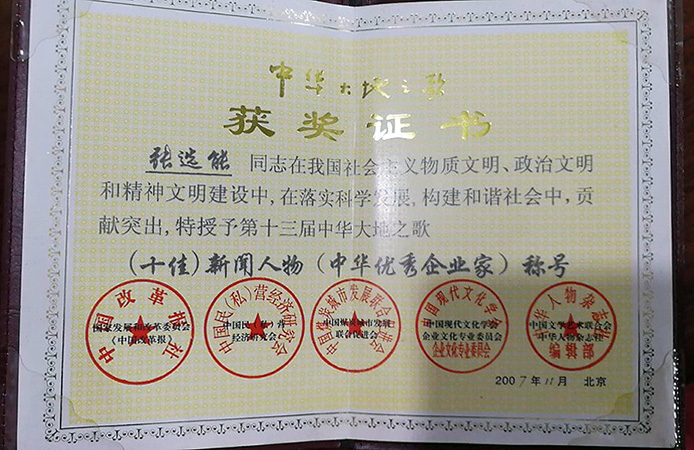 中华大地之歌
获奖证书
张选能 同志在我国社会主义物质文明、政治文明
和精神文明建设中,在落实科学发展,构建和谐社会中,贡
献突出,特授予第十三届中华大地之歌
(十佳)新闻人物(中华优秀企业家)称号
中国改革报社
国家发展和改革委员会
(中国改革报)
中国民(私)营经济研究会
中国民(私)营
经济研究会
中国煤炭城市发展联合促进会
中国煤炭城市发展
联合促进会
中国现代文化学会
中国现代文化学会
企业文化专业委员会
企业文化专业委员会
中华人物杂志社
中国文学艺术联合会
中华人物杂志社
编辑部
2007年11月 北京